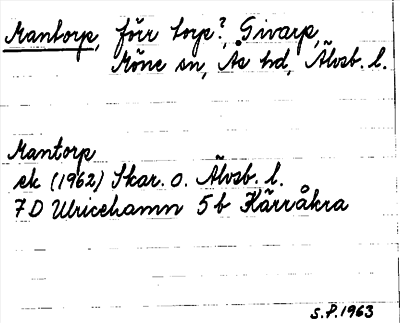 Mantorp, förr torp?, Givarp,
Möne sn, Ås hd, Älvsb. l.
Mantorp
ek (1962) Skar. o. Älvsb. l.
7D Ulricehamn 5b Kärråkra
S.P. 1963